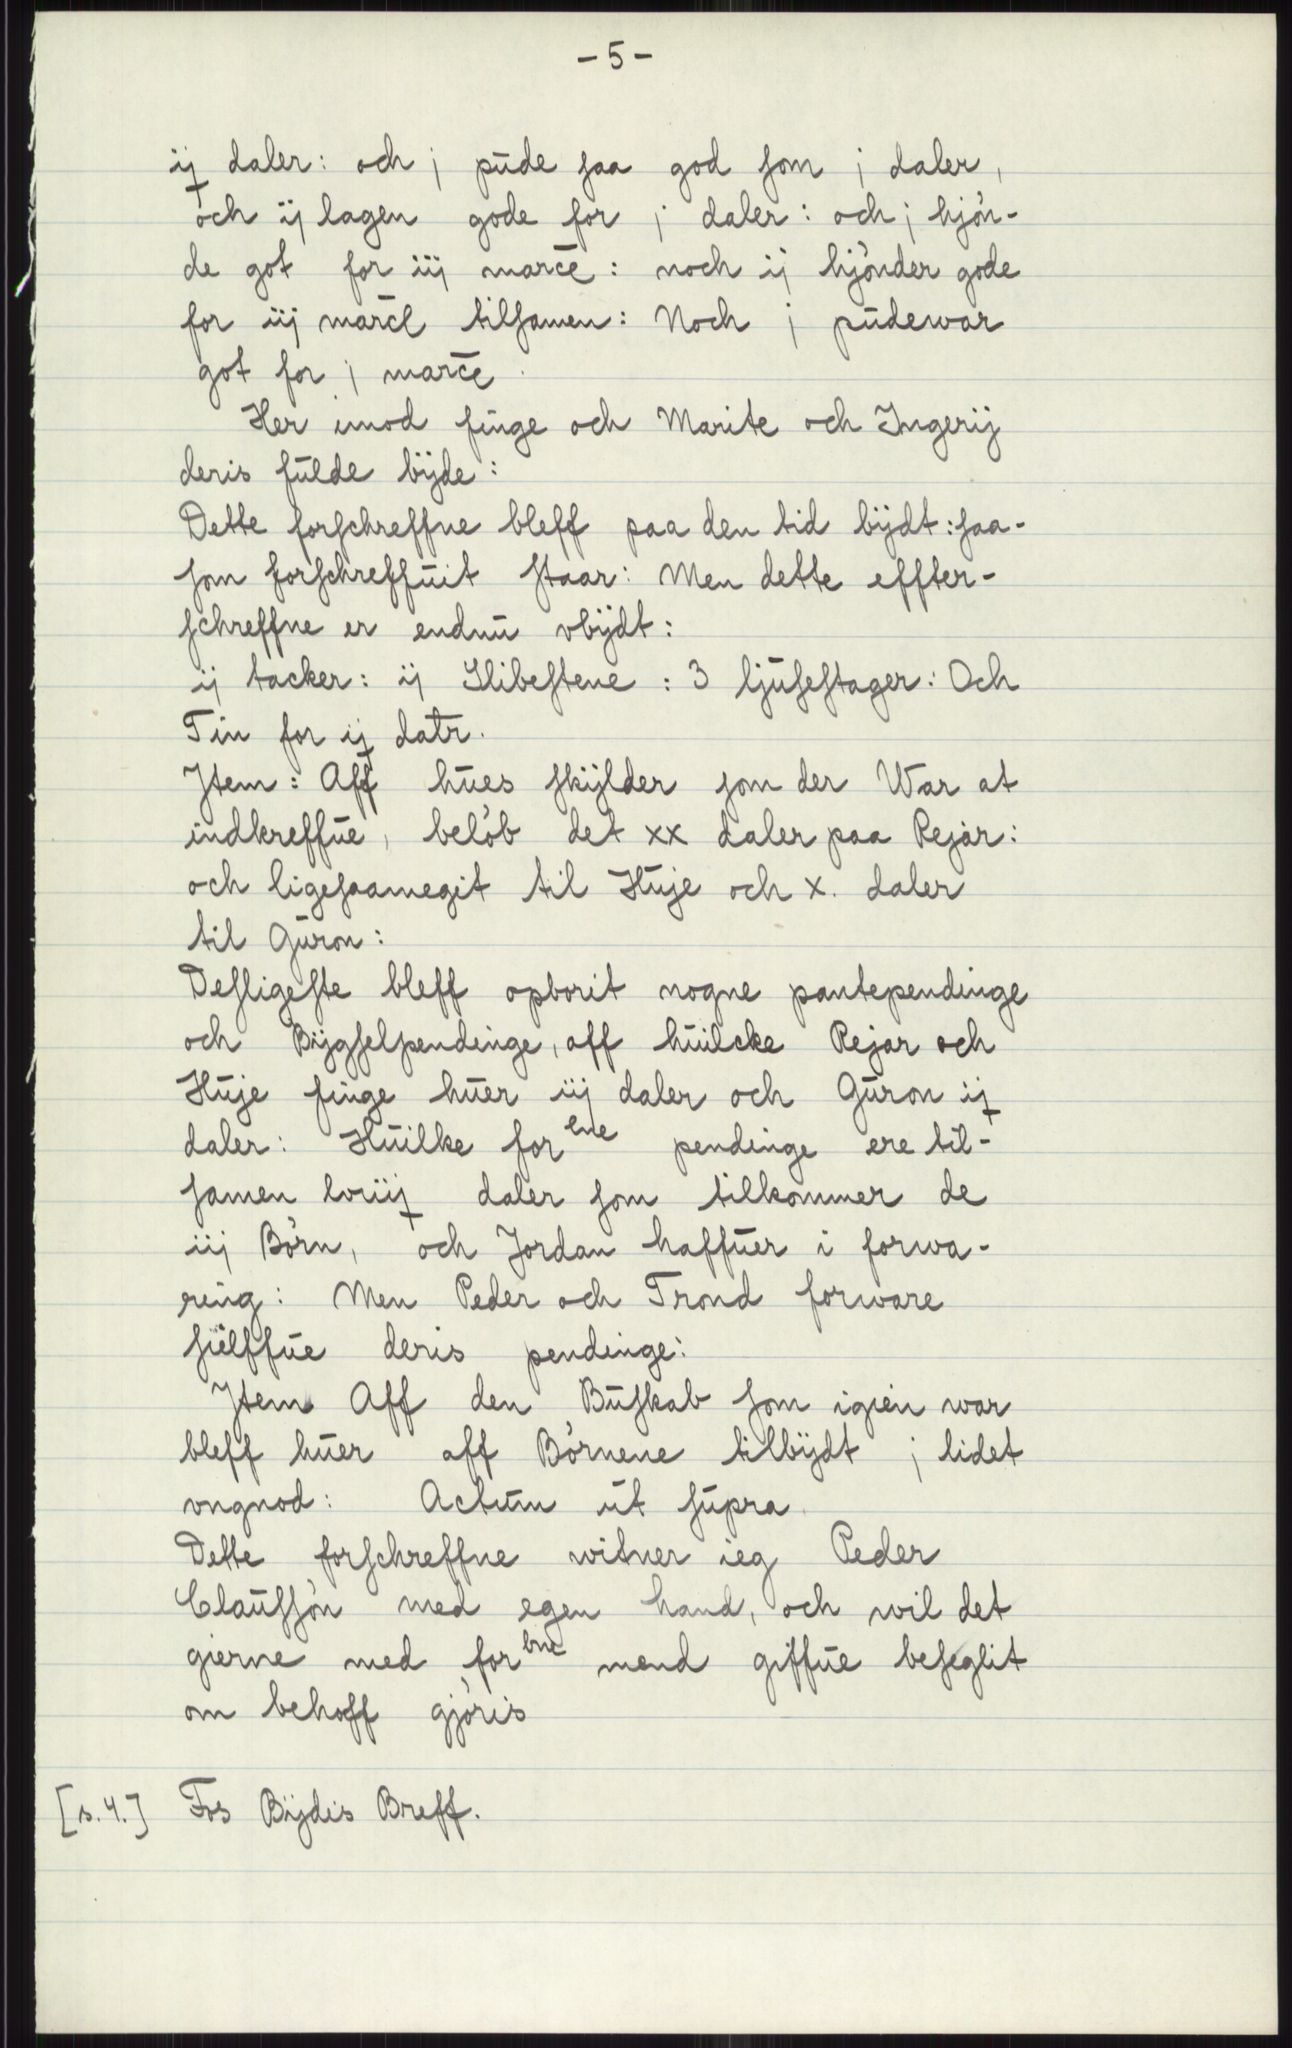 - 5 -
ij daler: och j pude saa god som j daler,
och ij lagen gode for j daler: och j hjön-
de got for iij marce: noch ij hjönder gode
for iij marcl tilsamen: Noch j pudewar
got for j marce.
Her imod finge och Marite och Ingerij
deris fulde bijde:
Dette forschreffne bleff paa den tid bijdt: saa-
som forschreffuit staar: Men dette effter-
schreffne er endnu vbijdt:
ij tacker: ij Slibestene: 3 ljusestager: Och
Tin for ij datr.
Jtem: Aff hues skijlder som der War at
indkreffue, belöb det xx daler paa Rejar:
och ligesaamegit til Huje och x. daler
til Guron:
Desligeste bleff opborit nogne pantependinge
och Bijgselpendinge, aff huilcke Rejar och
Huje finge huer iij daler och Guron ij
daler: Huilke forᵉⁿᵉ pendinge ere til-
samen lviij daler som tilkommer de
iij Börn, och Jordan haffuer i forwa-
ring: Men Peder och Trond forware
sielffue deris pendinge:
Jtem Aff den Buskab som igien war
bleff huer aff Börnene tilbijdt j lidet
vngnod: Actum ut supra.
Dette forschreffne witner ieg Peder
Claussön med egen hand, och wil det
gierne med forᵇⁿᵉ mend giffue beseglit
om behoff gjöris
[s. 4.] Fos Bijdis Breff.